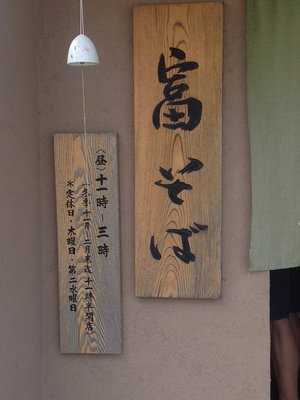 富そば
(昼)十一時~三時
(冬季十一月~二月末は十一時半開店)
※定休日・木曜日・第二水曜日